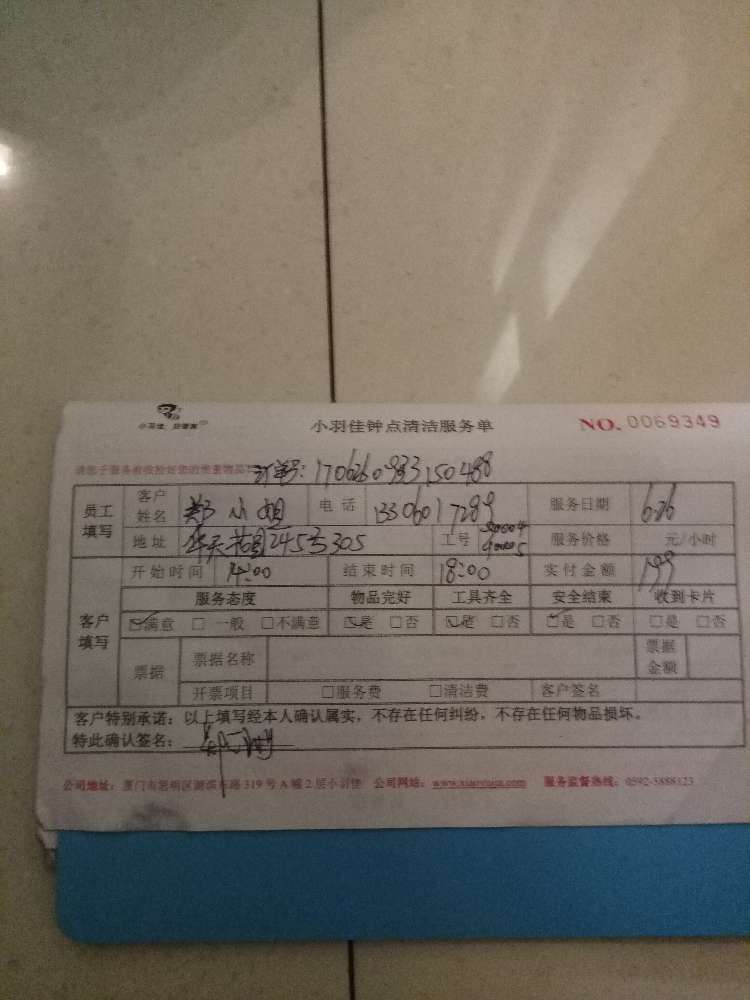 小羽佳 好管家
小羽佳钟点清洁服务单 NO. 0069349
订单号: 1706260933150488
员工填写 客户姓名 郑小姐 电话 13306017289 服务日期 6.26
地址 245号305 工号 90004 90005 服务价格 元/小时
客户填写 开始时间 14:00 结束时间 18:00 实付金额 199
服务态度 物品完好 工具齐全 安全结束 收到卡片
☑满意 □一般 □不满意 ☑是 □否 ☑是 □否 ☑是 □否 □是 □否
票据 票据名称 票据金额
开票项目 □服务费 □清洁费 客户签名
客户特别承诺：以上填写经本人确认属实，不存在任何纠纷，不存在任何物品损坏。
特此确认签名：
公司地址：厦门市思明区湖滨东路 319 号 A 幢 2 层小羽佳 公司网站：www.xiaoyujia.com 服务监督热线：0592-5888123